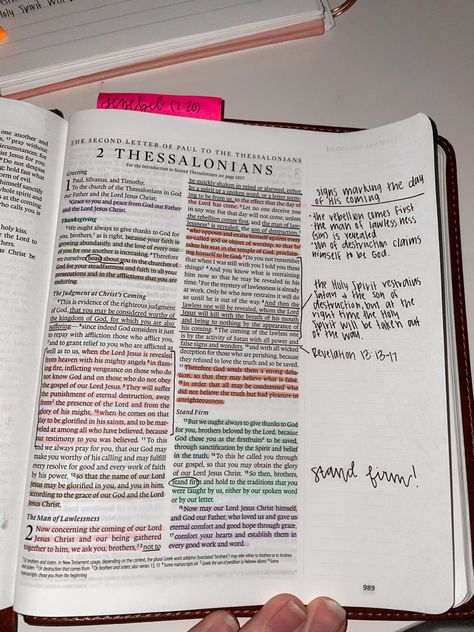 Holy Spirit Will
jezebel (2:20)
THE SECOND LETTER OF PAUL TO THE THESSALONIANS
2 THESSALONIANS
For the Introduction to Second Thessalonians see page
Greeting
1 Paul, Silvanus, and Timothy,
To the church of the Thessalonians in God
our Father and the Lord Jesus Christ:
2 Grace to you and peace from God our Father
and the Lord Jesus Christ.
Thanksgiving
3 We ought always to give thanks to God for
you, brothers, as is right, because your faith is
growing abundantly, and the love of every one
of you for one another is increasing. 4 Therefore
we ourselves boast about you in the churches of
God for your steadfastness and faith in all your
persecutions and in the afflictions that you are
enduring.
The Judgment at Christ's Coming
5 This is evidence of the righteous judgment
of God, that you may be considered worthy of
the kingdom of God, for which you are also
suffering— 6 since indeed God considers it just
to repay with affliction those who afflict you,
7 and to grant relief to you who are afflicted as
well as to us, when the Lord Jesus is revealed
from heaven with his mighty angels 8 in flam-
ing fire, inflicting vengeance on those who do
not know God and on those who do not obey
the gospel of our Lord Jesus. 9 They will suffer
the punishment of eternal destruction, away
from the presence of the Lord and from the
glory of his might, 10 when he comes on that
day to be glorified in his saints, and to be mar-
veled at among all who have believed, because
our testimony to you was believed. 11 To this
end we always pray for you, that our God may
make you worthy of his calling and may fulfill
every resolve for good and every work of faith
by his power, 12 so that the name of our Lord
Jesus may be glorified in you, and you in him,
according to the grace of our God and the Lord
Jesus Christ.
The Man of Lawlessness
2 Now concerning the coming of our Lord
Jesus Christ and our being gathered
together to him, we ask you, brothers, 2 not to
be quickly shaken in mind or alarmed, either
by a spirit or a spoken word, or a letter seem-
ing to be from us, to the effect that the day of
the Lord has come. 3 Let no one deceive you
in any way. For that day will not come, unless
the rebellion comes first, and the man of law-
lessness is revealed, the son of destruction,
4 who opposes and exalts himself against every
so-called god or object of worship, so that he
takes his seat in the temple of God, proclaim-
ing himself to be God. 5 Do you not remember
that when I was still with you I told you these
things? 6 And you know what is restraining
him now so that he may be revealed in his
time. 7 For the mystery of lawlessness is already
at work. Only he who now restrains it will do
so until he is out of the way. 8 And then the
lawless one will be revealed, whom the Lord
Jesus will kill with the breath of his mouth
and bring to nothing by the appearance of
his coming. 9 The coming of the lawless one
is by the activity of Satan with all power and
false signs and wonders, 10 and with all wicked
deception for those who are perishing, because
they refused to love the truth and so be saved.
11 Therefore God sends them a strong delu-
sion, so that they may believe what is false,
12 in order that all may be condemned who
did not believe the truth but had pleasure in
unrighteousness.
Stand Firm
13 But we ought always to give thanks to God for
you, brothers beloved by the Lord, because
God chose you as the firstfruits to be saved,
through sanctification by the Spirit and belief
in the truth. 14 To this he called you through
our gospel, so that you may obtain the glory
of our Lord Jesus Christ. 15 So then, brothers,
stand firm and hold to the traditions that you
were taught by us, either by our spoken word
or by our letter.
16 Now may our Lord Jesus Christ himself,
and God our Father, who loved us and gave us
eternal comfort and good hope through grace,
17 comfort your hearts and establish them in
every good work and word.
signs marking the day
of his coming
the rebellion comes first
the man of lawlessness
(son) is revealed
son of destruction claims
himself to be God.
the Holy Spirit restrains
satan & the son of
destruction, but at the
right time the Holy
Spirit will be taken out
of the way.
Revelation 13:13-17
stand firm!
989